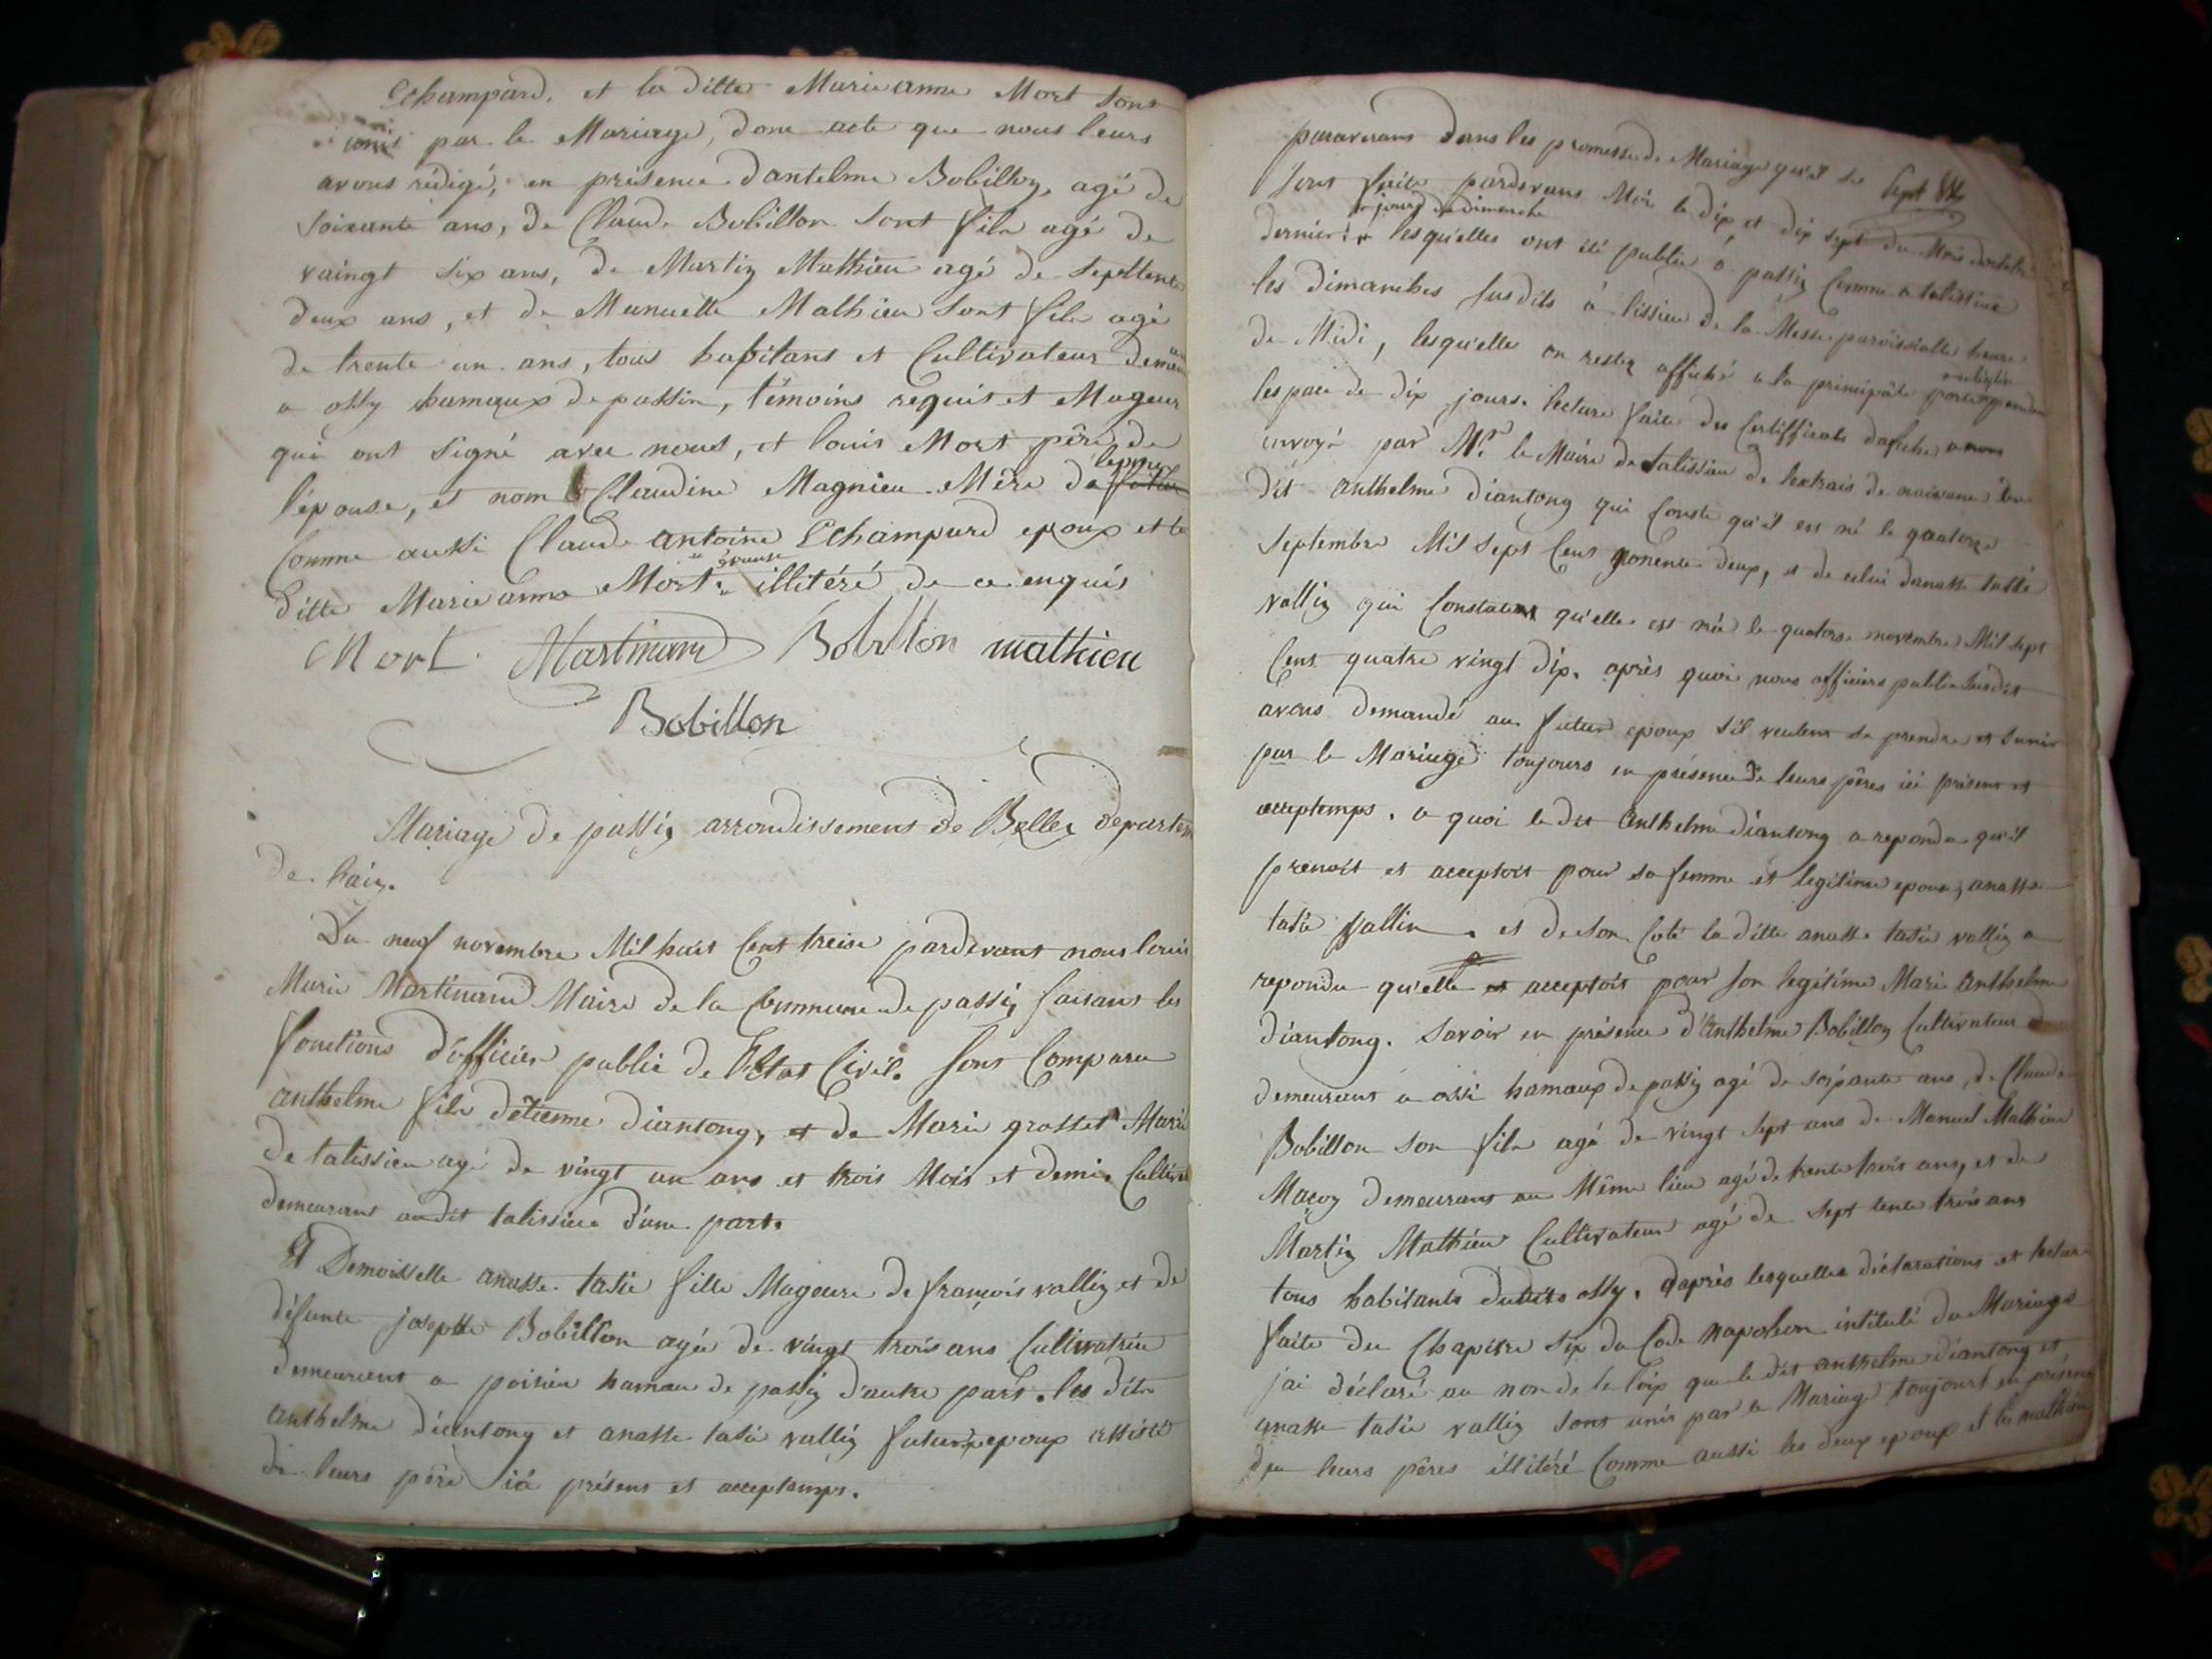 Echampard, et la ditte Marieanne Mort sont
unis par le Mariage, donc acte que nous leurs
avons rédigé, en présence dantelme Bobillon, agé de
soixante ans, de Claude Bobillon sont fils agé de
vaingt six ans, de Martin Mathieu agé de septtente
deux ans, et de Manuelle Mathieu sont fils agé
de trente un ans, tous habitans et Cultivateur
a ossy hamaux de passin, témoins requis et Mageur
qui ont signé avec nous, et louis Mort père de
lépouse, et non Claudine Magnieu Mère de
Comme aussi Claude antoine Echampard epoux et la
épouse
ditte Marieanne Mort illitéré de ce enquis
Mort Martinand Bobillon mathieu
Bobillon
Mariage de passin arrondissement de Belley departem
de lain.
Du neuf novembre Mil huit Cent treise pardevant nous louis
Marie Martinand Maire de la Commune de passin faisant les
fonctions d'officier public de l'Etat Civil. Sont Comparu
anthelme fils détienne diantony, et de Marie grosset Marié
de talissieu agé de vingt un ans et trois Mois et demi. Cultiva
demeurant audit talissieu d'une part.
Et Demoisselle anasse tasie fille Mageure de françois vallin et de
défunte josephte Bobillon agée de vingt trois ans Cultivatrice
demeurant a poisieu hamau de passin d'autre part. les dits
anthelme diantony et anasse tasie vallin futur epoux assisté
de leurs père ici présens et acceptemps.
paravant dans les promesse de Mariage qu'il se
Sept
sont faite pardevant Moi le dix et dix sept du Mois doctobre
jours de dimanche
dernier lesqu'elles ont été publié a passin Comme a talissieu
les dimanches susdits à lissieu de la Messe paroissialle heure
de Midi, lesqu'elle on resté affiché a la principale porte pendant
lespace de dix jours. lecture faite du Certifficat dafiche a nous
envoyé par Mr le Maire de talissieu de lextrais de naissance du
dit anthelme diantony qui Conste qu'il est né le quatorze
septembre Mil sept Cent nonente deux, et de celui danasse tasie
vallin qui Constate qu'elle est née le quatorse novembre Mil sept
Cent quatre vingt dix. après quoi nous officiers public susdit
avons demandé au futur epoux s'il veulent se prendre et sunir
par le Mariage toujours en présence de leurs pères ici présent et
acceptemps. a quoi le dit Anthelme diantony a repondu qu'il
prenoit et acceptoit pour sa femme et legitime epouse, anasse
tasie Vallin. et de son Coté la ditte anasse tasie vallin a
repondu qu'elle acceptoit pour son legitime Mari Anthelme
diantony. Savoir en présence d'Anthelme Bobillon Cultivateur
demeurant a ossi hamaux de passin agé de soixante ans, de Claude
Bobillon son fils agé de vingt sept ans de Manuel Mathieu
Maçon demeurant au Même lieu agé de trente trois ans, et de
Martin Mathieu Cultivateur agé de sept tente trois ans
tous habitants ossy. daprès lesquelles déclarations et lecture
faite du Chapitre Six du Code Napoléon intitulé du Mariage
jai déclaré au non de la loix que le dit anthelme diantony et
anasse tasie vallin sont unis par le Mariage toujours en présence
de leurs pères illitéré Comme aussi les deux epoux et les mathieu